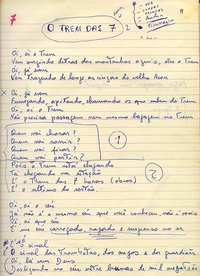 7
O TREM DAS 7
8
Oi, oi o Trem
Vem surgindo detras das montanhas azuis, olhe o Trem
Oi, já vem
Vem Trazendo de longe as cinzas do velho Aeon
Oi, já vem
Fumegando, apitando, chamando os que sabem do Trem
Oi, é o Trem
Não precisa passagem nem mesmo bagagem no Trem
Quem vai chorar?
Quem vai sorrir?
Quem vai ficar?
Quem vai partir?
1
Pois o Trem está chegando
Tá chegando na estação
É o Trem das 7 horas
É o último do sertão
2
Oi, oi o céu
Já não é o mesmo céu que você conheceu, não é mais
Oi, que céu
É um céu carregado, rajado e suspenso no ar
o sinal
O sinal das Trombetas, dos anjos e dos guardiões
lá vem Deus
Deslizando no céu entre brumas de mil megatões